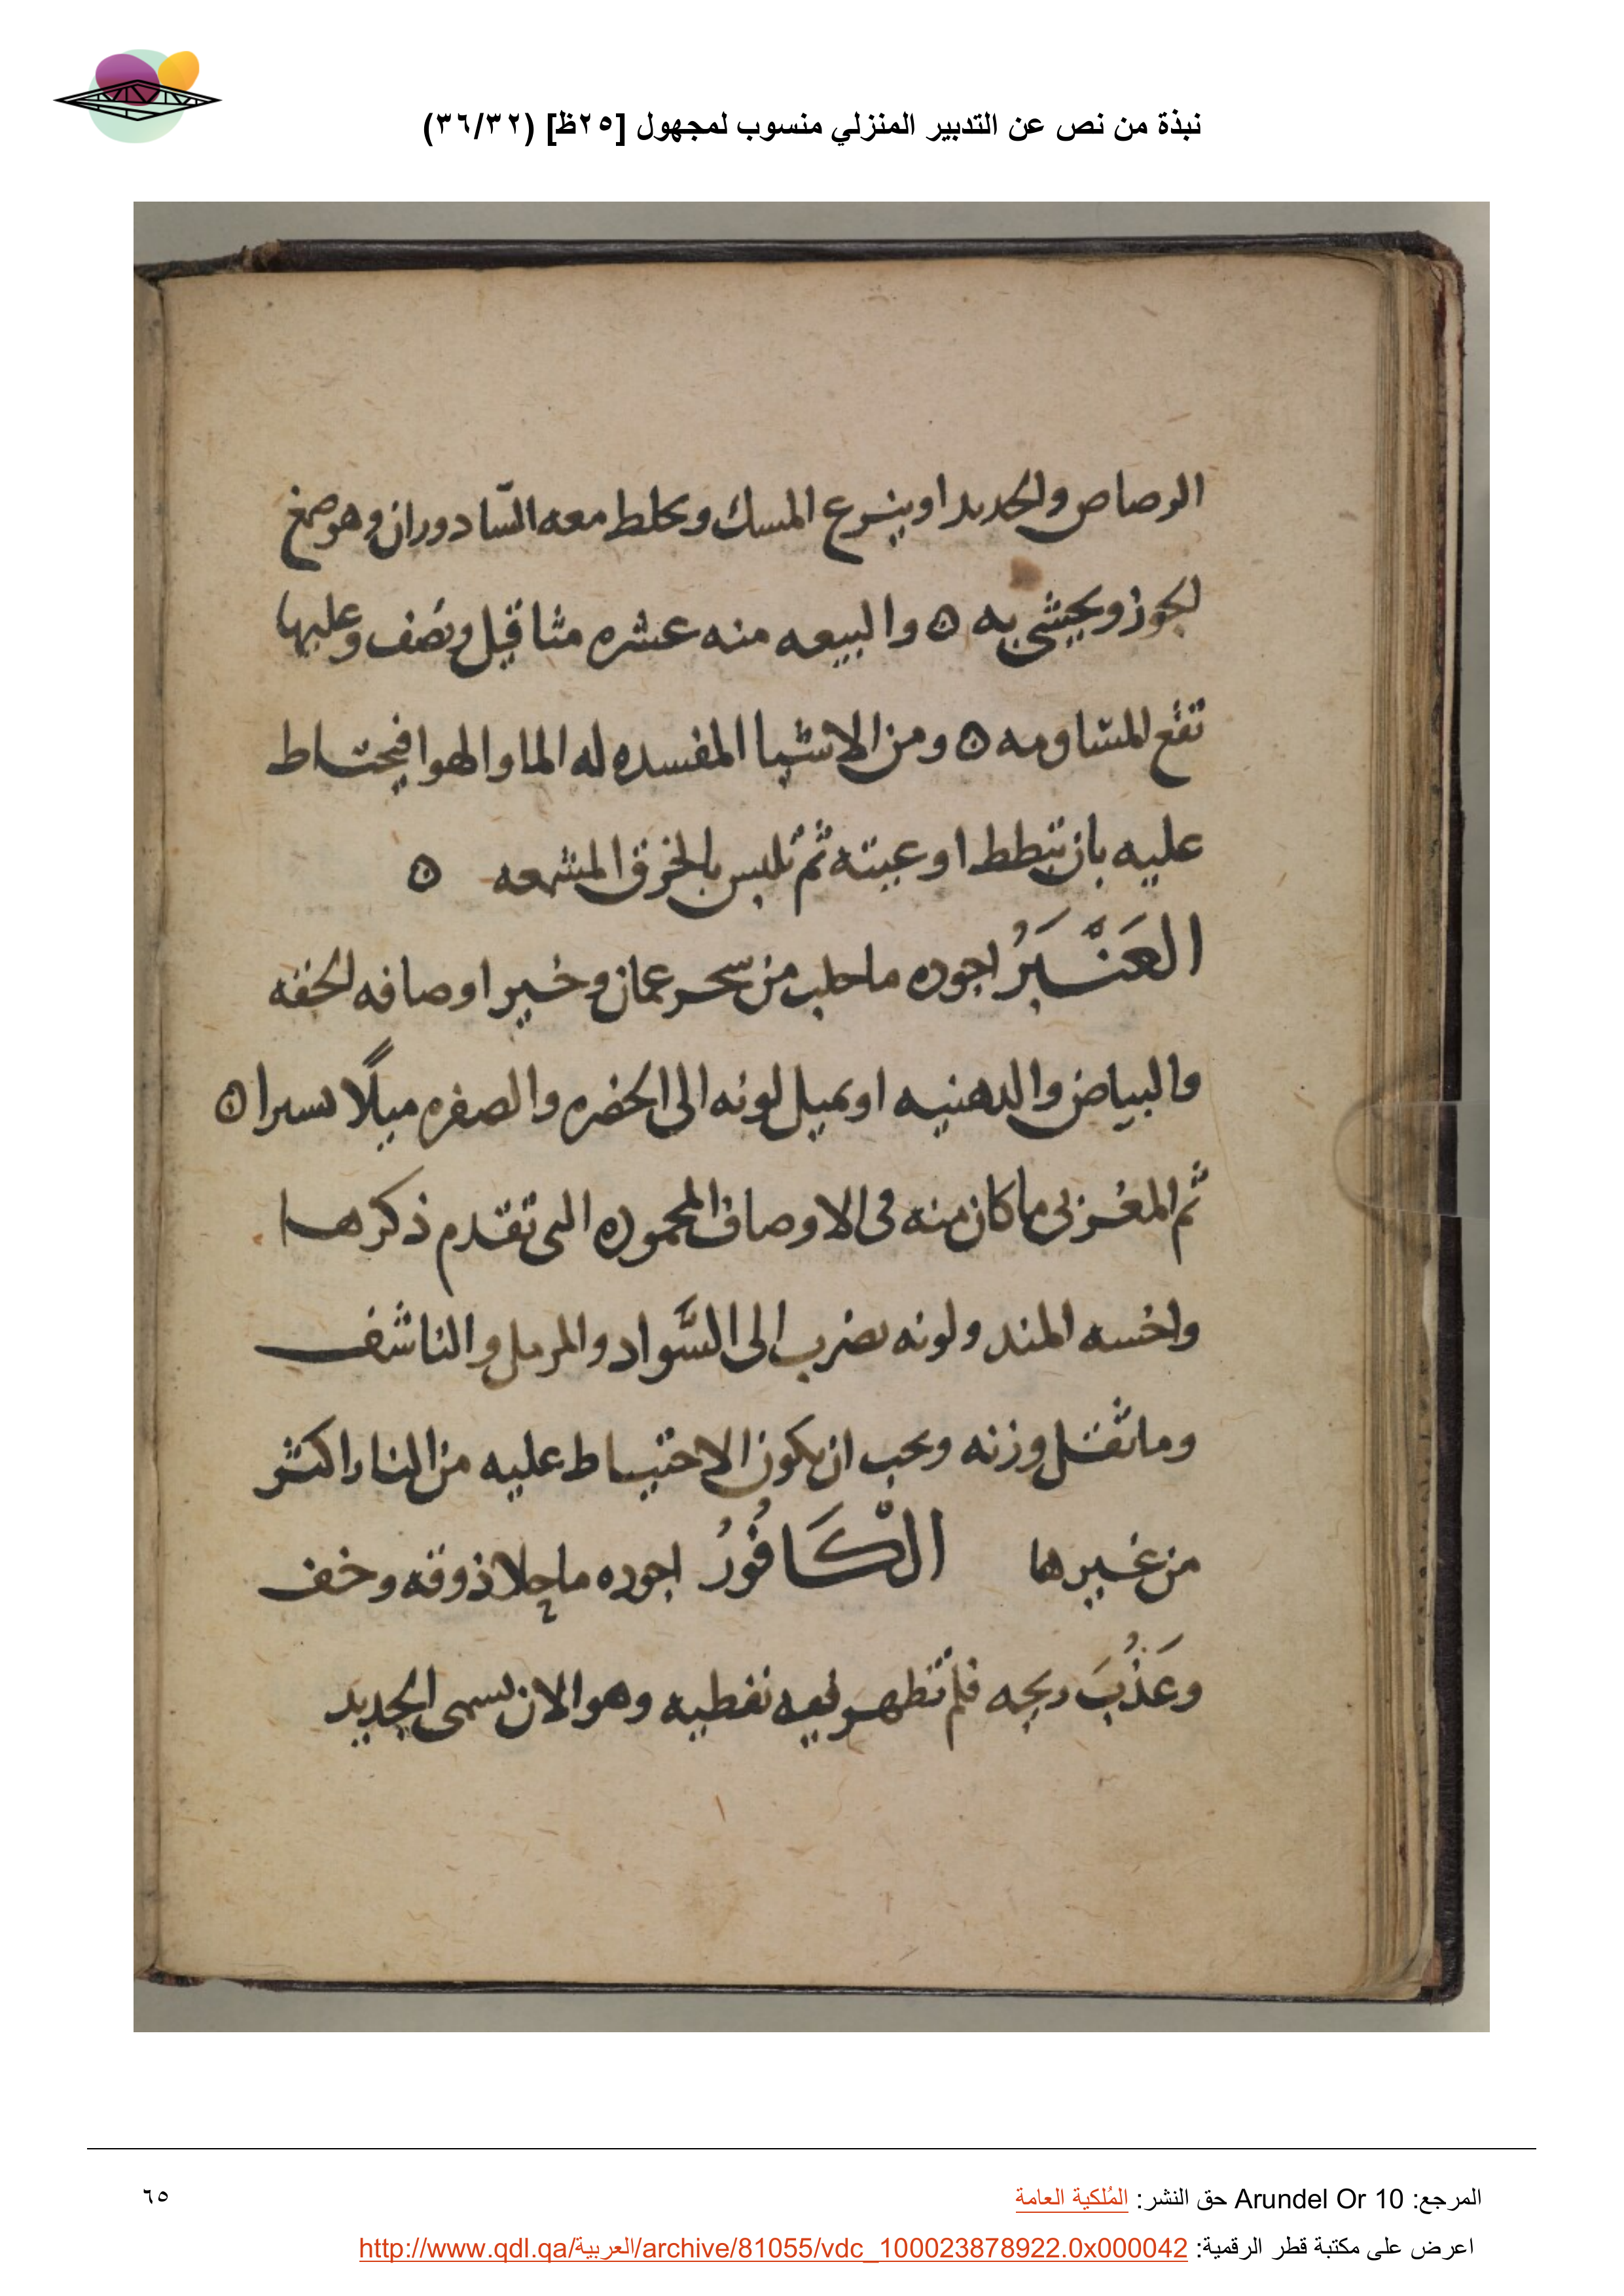 نبذة من نص عن التدبير المنزلي منسوب لمجهول [٢٥ظ] (٣٦/٣٢)
الرصاص والحديد او ينزع المسك ويخلط معه السّادوران وهو صمغ
الجوز ويحشى به ۞ والبيعه منه عشره مثاقيل ونصف وعليها
تقع المسّاومه ۞ ومن الاشيا المفسده له الما والهوا فيحتاط
عليه بان تبطط اوعيته ثم تلبس بالخرق المشمعه ۞
العَنْبَرُ اجوده ما جلب من سحر عمان وخير اوصافه الخفه
والبياض والدهنيه او يميل لونه الى الخضره والصفره ميلًا يسيرا ۞
ثم المغربى ما كان منه فى الاوصاف المحموده التى تقدم ذكرها
واخسه المند ولونه يضرب الى السَّواد والمرمل والناشف
وما ثقل وزنه ويجب ان يكون الاحتياط عليه من النار اكثر
من غيرها الْكَافُورُ اجوده ما حلا ذوقه وخف
وعَذُبَ ريحه فلم تظهر فيه نفطيه وهو الان يسمى الجديد
المرجع: Arundel Or 10 حق النشر: المُلكية العامة
٦٥
اعرض على مكتبة قطر الرقمية: http://www.qdl.qa/العربية/archive/81055/vdc_100023878922.0x000042